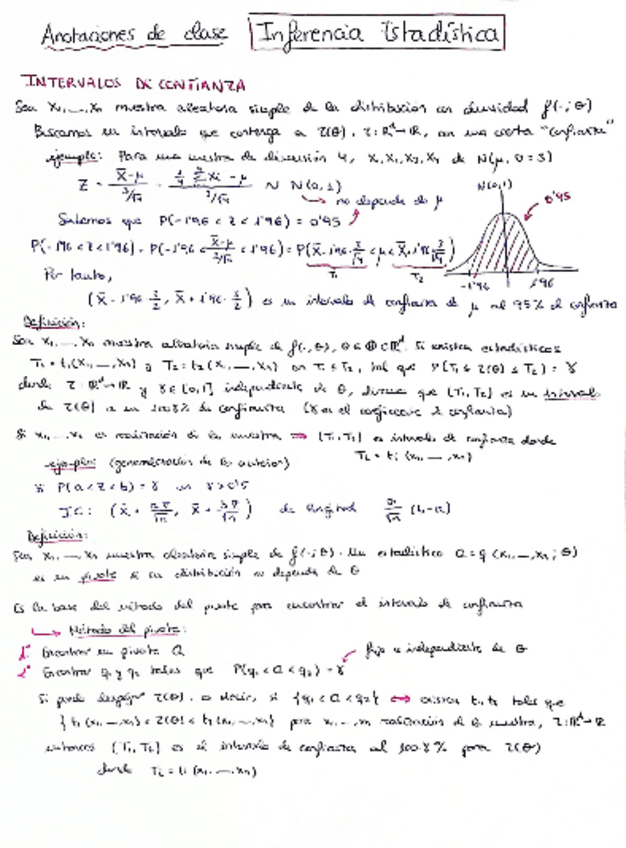 Anotaciones de clase Inferencia Estadística
INTERVALOS DE CONFIANZA
Sea X₁,...,Xn muestra aleatoria simple de la distribución con densidad f(·;θ)
Buscamos un intervalo que contenga a τ(θ), τ: ℝᵈ→ℝ, con una cierta "confianza"
ejemplo: Para una muestra de dimensión 4, X₁X₂X₃X₄ de N(μ, σ=3)
Z = (X̄-μ)/(3/√4) = (1/4 Σ Xi - μ)/(3/√4) ~ N(0,1)
no depende de μ
N(0,1)
0'95
-1'96 1'96
Sabemos que P(-1'96 < Z < 1'96) = 0'95
P(-1'96 < Z < 1'96) = P(-1'96 < (X̄-μ)/(3/√4) < 1'96) = P(X̄ - 1'96 · 3/√4 < μ < X̄ + 1'96 · 3/√4)
T₁ T₂
Por tanto,
(X̄ - 1'96 · 3/2, X̄ + 1'96 · 3/2) es un intervalo de confianza de μ al 95% de confianza
Definición:
Sea X₁,...,Xn muestra aleatoria simple de f(·,θ), θ∈Θ⊂ℝᵈ. Si existen estadísticos
T₁ = t₁(X₁,...,Xn) y T₂ = t₂(X₁,...,Xn) con T₁ ≤ T₂, tal que P(T₁ ≤ τ(θ) ≤ T₂) = γ
donde τ: ℝᵈ→ℝ y γ∈[0,1] independiente de θ, diremos que [T₁,T₂] es un intervalo
de τ(θ) a un 100γ% de confianza (γ es el coeficiente de confianza)
Si x₁,...,xn es realización de la muestra ⇒ [T₁,T₂] es intervalo de confianza donde
Ti = ti(x₁,...,xn)
ejemplo: (generalización de lo anterior)
Si P(a<Z<b) = γ
IC: (X̄ + , X̄ + ) de longitud (b-a)
Definición:
Sea X₁,...,Xn muestra aleatoria simple de f(·;θ). Un estadístico Q = q(X₁,...,Xn;θ)
es un pivote si su distribución no depende de θ
Es la base del método del pivote para encontrar el intervalo de confianza
Método del pivote:
1º Encontrar un pivote Q
2º Encontrar q₁ y q₂ tales que P(q₁ < Q < q₂) = γ fijo e independiente de θ
Si puedo despejar τ(θ), es decir, si {q₁ < Q < q₂} ⇔ existen t₁,t₂ tales que
{t₁(x₁,...,xn) < τ(θ) < t₂(x₁,...,xn)} para x₁,...,xn realización de la muestra, τ: ℝᵈ→ℝ
entonces [T₁,T₂] es el intervalo de confianza al 100γ% para τ(θ)
donde Ti = ti(x₁,...,xn)